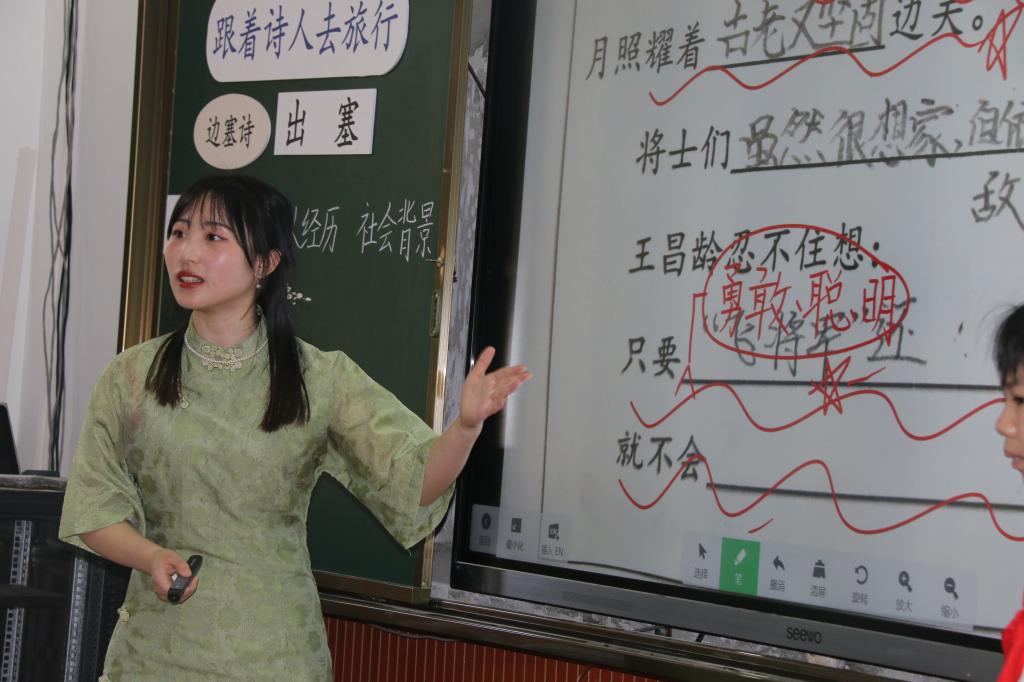 跟着诗人去旅行
边塞诗
出 塞
人经历 社会背景
月照耀着古老又坚固边关。
将士们虽然很想家,但
敌
王昌龄忍不住想:
勇敢、聪明
只要飞将军在
就不会
返回
最小化
插入 EN
选择
笔
撤消
清屏
旋转
放大
缩小
seewo